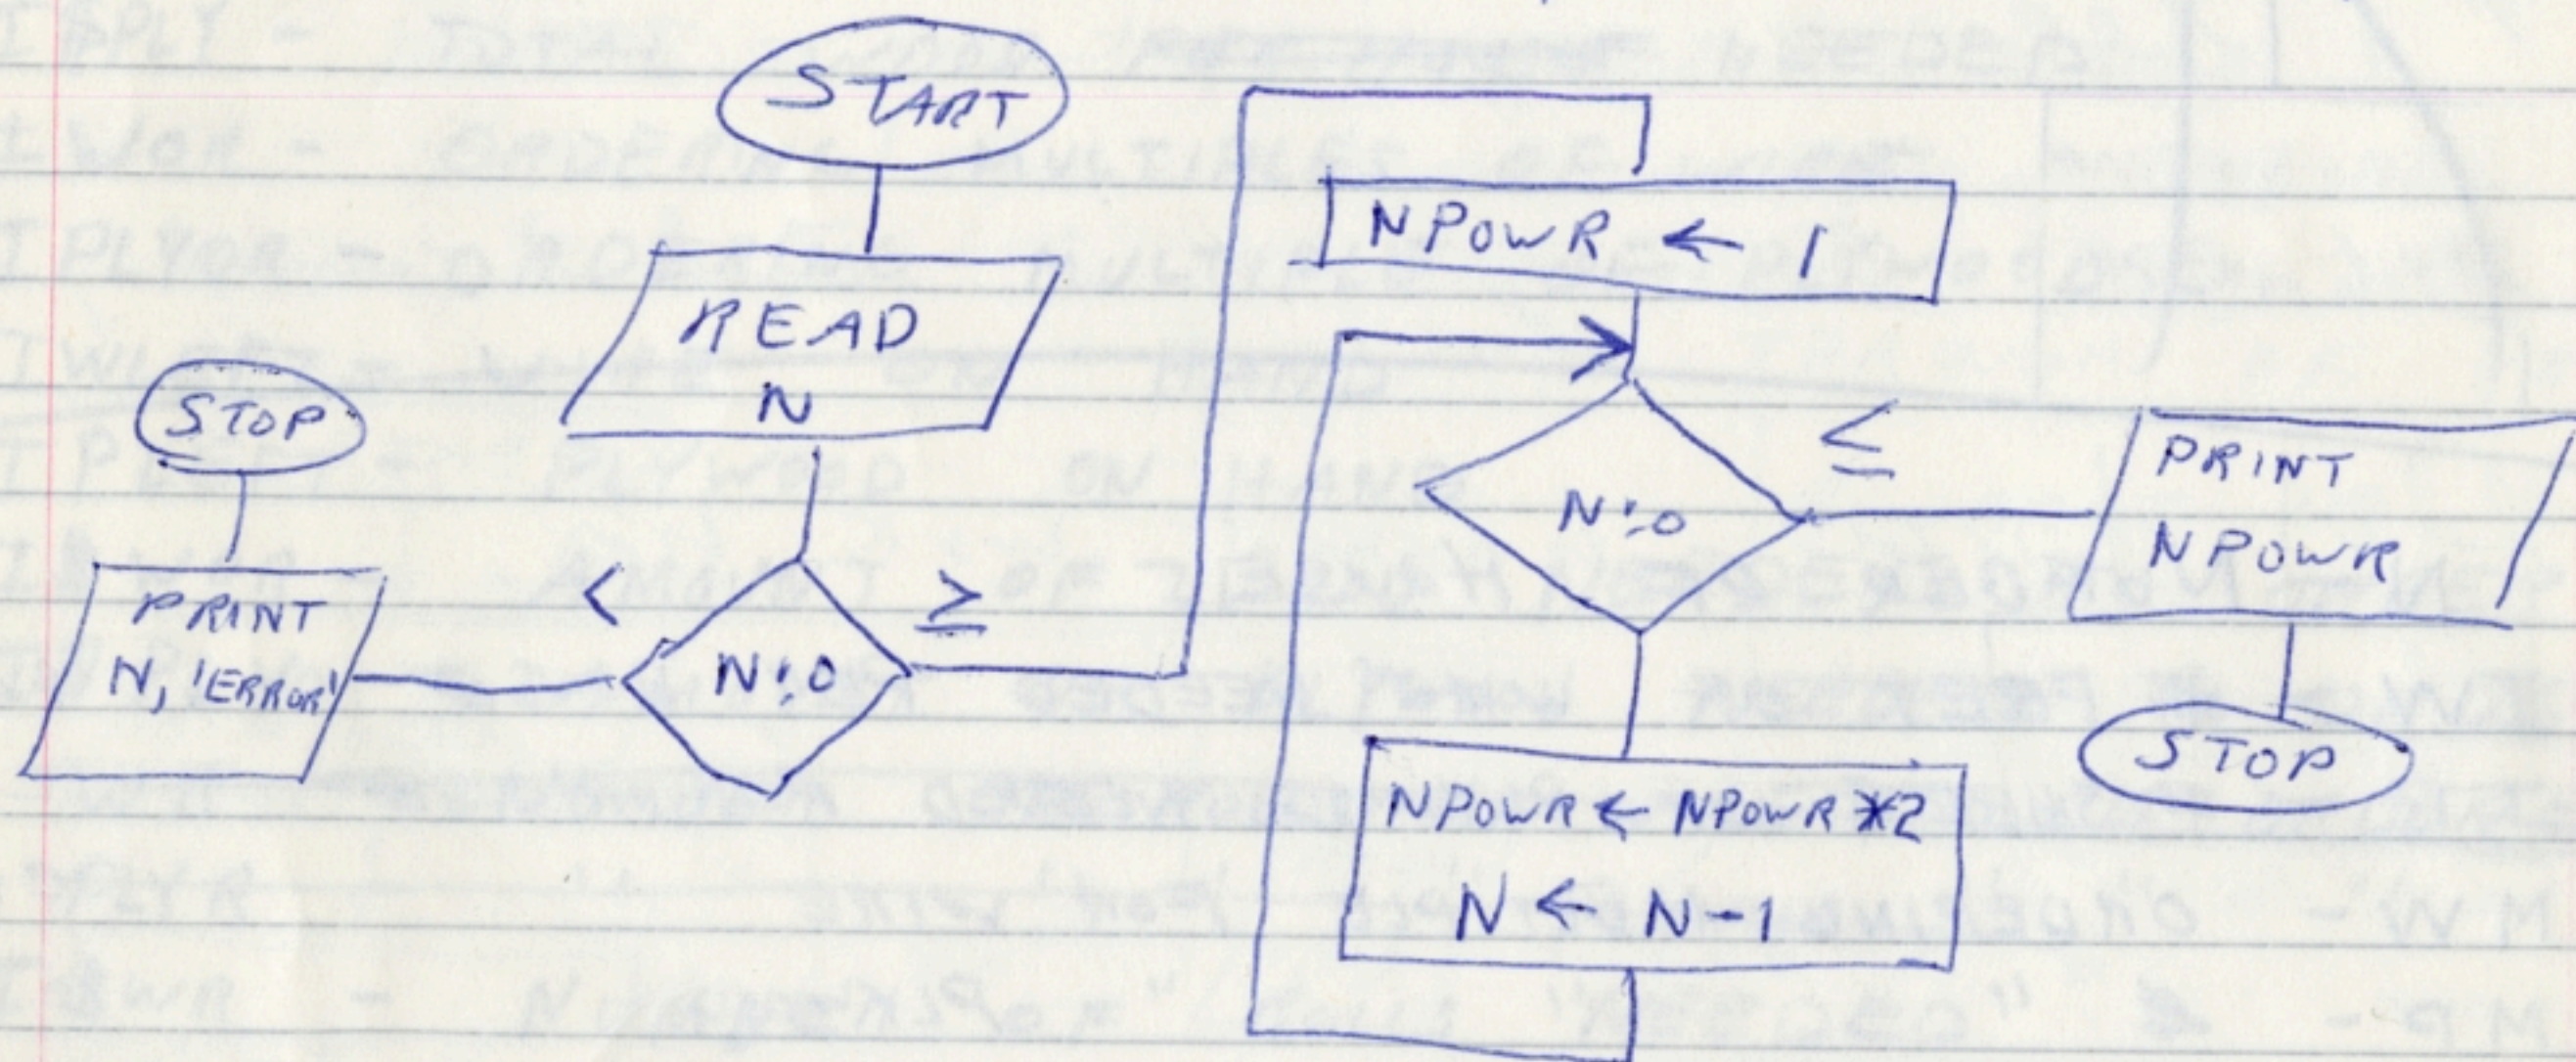 START
READ
N
N:0
<
≥
PRINT
N, 'ERROR'
STOP
NPOWR ← 1
N:0
≤
PRINT
NPOWR
STOP
NPOWR ← NPOWR *2
N ← N-1